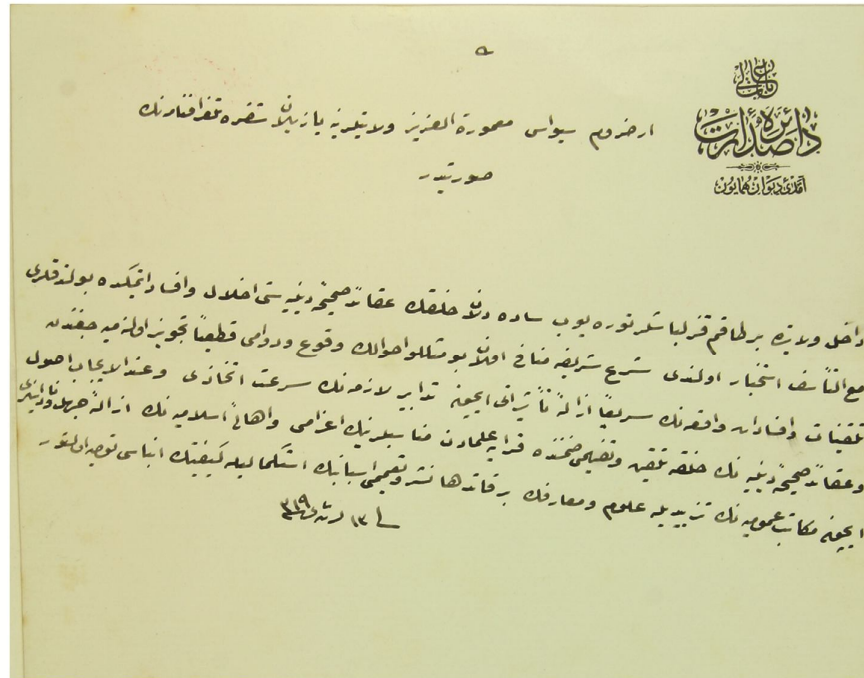 باب عالی
دائرۀ صدارت
آمدئ دیوان همایون
ارضروم سیواس معمورة العزیز ولایتلرینه یازیلان شفره تلغرافنامه‌نك
صورتیدر
داخل ولایتده بر طاقم قزلباشلر توره‌یوب ساده دلان خلقك عقائد صحیحۀ دینیه‌سنی اخلال وافساد ایتمکده بولندقلری
مع التأسف استخبار اولندی شرع شریفه منافی اولان بو مثللو احوالك وقوع ودوامی قطعیاً تجویز اولنه‌میه‌جغندن
تلقینات وافسادات واقعه‌نك سریعاً ازالۀ تأثیراتی ایچون تدابیر لازمه‌نك سرعت اتخاذی وعند الایجاب اصول
وعقائد صحیحۀ دینیه‌نك خلقه تلقین وتفهیمی ضمننده قرایه علمادن مناسبلرینك اعزامی واهالئ اسلامیه‌نك ازالۀ جهل ونادانیلری
ایچون مکاتب عمومیه‌نك تزییدیله علوم ومعارفك برقاتدها نشر وتعمیمی اسبابنك استکمالیله کیفیتك انباسی توصیه اولنور
فی ١٣ ٣١٩